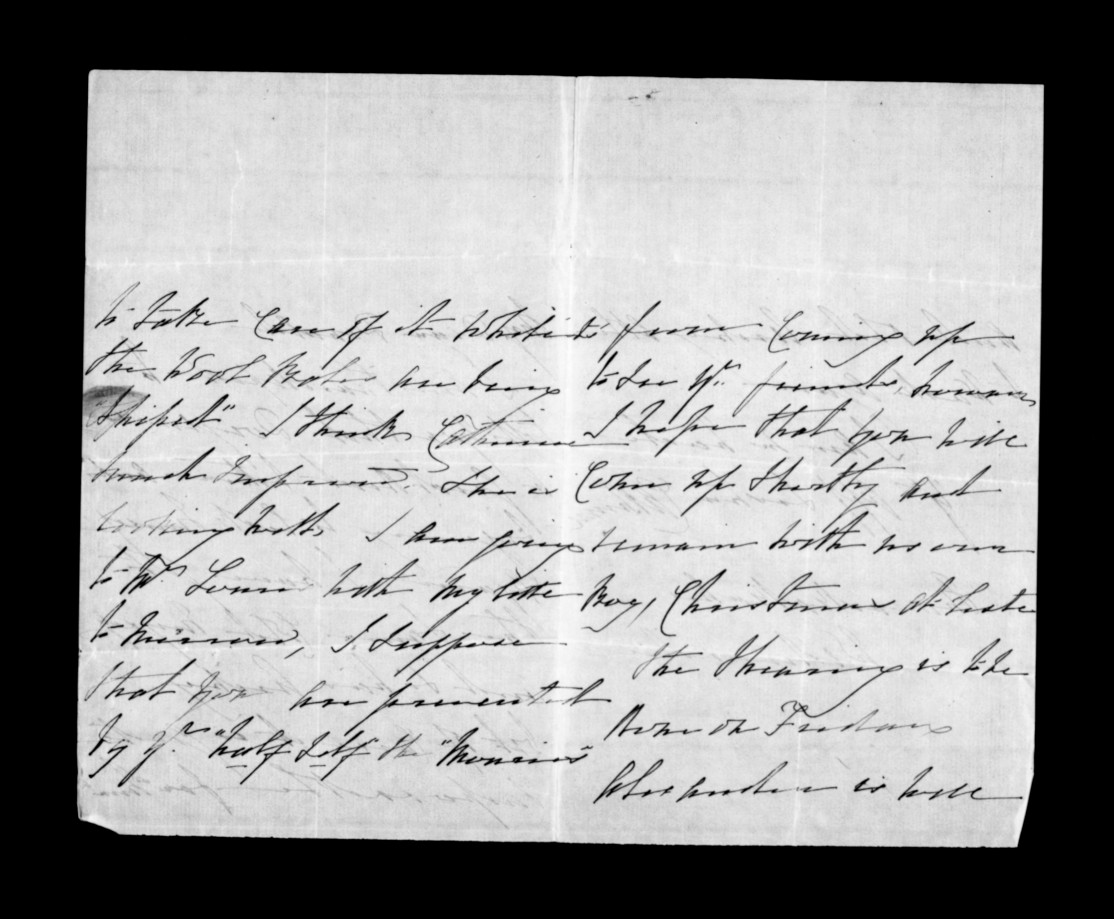 to take care of it whilst
the Wool Bales are being
"Shiped" I think Catherine
much improved. She is
looking well. I am going
to Mt Louisa with my little Boy,
to morrow, I suppose
that you are prevented
by yr "half self" the "Mouses"
from coming up
to see yr. friends, however
I hope that you will
come up shortly and
remain with us over
Christmas at least
The Shearing is to be
done on Friday
Alexander is well